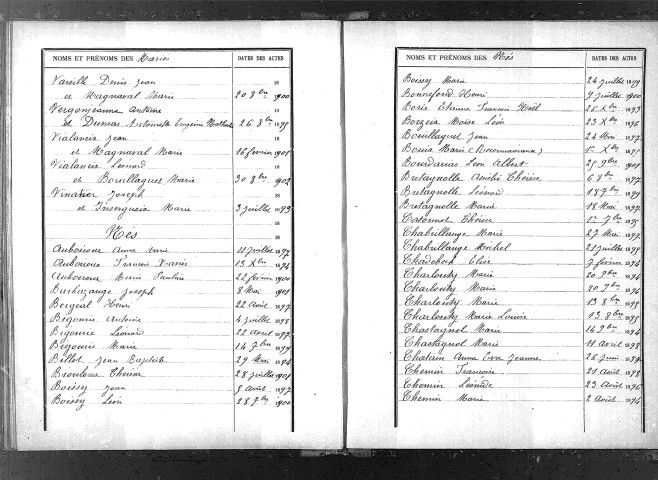 NOMS ET PRÉNOMS DES Mariés DATES DES ACTES
Vareille Denis Jean 18
et Magnaval Marie 20 8bre 1900
Vergonjeanne Antoine 18
et Dumas Antoinette Eugénie 26 8bre 1895
Vialaneix Jean 18
et Magnaval Marie 16 février 1901
Vialaneix Léonard 18
et Bouillaguet Marie 30 8bre 1902
Vinatier Joseph 18
et Marie 3 juillet 1893
18
Nés 18
Auboiroux Anne Marie 11 juillet
Auboiroux François Xavier 13 Xbre 1894
Auboiroux Marie Pauline 22 février 1900
Barbazange Joseph 8 Mai 1901
Bergeal Henri 22 Août 1897
Bigourie Antoine 4 juillet 1898
Bigourie Léonard 22 avril 1897
Bigourie Marie 14 7bre
Billot Jean Baptiste 29 Mai 1894
Thérèse 28 juillet 1901
Boissy Jean 8 Août 1897
Boissy Léon 28 7bre 1900
NOMS ET PRÉNOMS DES Nés DATES DES ACTES
Boissy Marie 24 juillet 1899
Bonnefond Henri 9 juillet 1900
Borie Etienne François Noël 26 Xbre 1893
Borzeix Moïse Léon 23 Xbre 1896
Bouillaguet Jean 24 Mai 1897
Marie 1er Xbre
Bourdarias Léon Albert 25 9bre 1901
Bretagnolle Amélie Thérèse 6 8bre 1897
Bretagnolle Léonard 18 7bre 1899
Bretagnolle Marie 18 Mai 1897
Thérèse 1er 7bre
Chabrillange Marie 27 Mai 1897
Chabrillange Michel 21 juillet 1899
Chadebech Elise 7 février 1894
Charlouty Marie 20 1894
Charlouty Marie 20 7bre 1896
Charlouty Marie 13 8bre 1898
Charlouty Marie Louise 13 8bre 1898
Chastagnol Marie 14 1894
Chastagnol Marie 11 Avril 1898
Chatain Anna Eva Jeanne 26 juin 1894
Chemin Françoise 21 Août 1898
Chemin Léonide 23 Août 1896
Chemin Marie 2 Août 1894